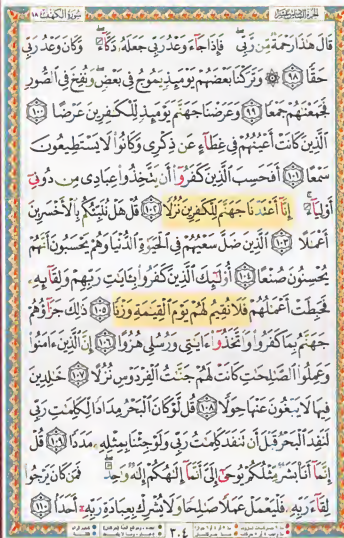 الجزء السادس عشر سورة الكهف ١٨
قَالَ هَٰذَا رَحْمَةٌ مِّن رَّبِّي ۖ فَإِذَا جَاءَ وَعْدُ رَبِّي جَعَلَهُ دَكَّاءَ ۖ وَكَانَ وَعْدُ رَبِّي
حَقًّا ٩٨ ۞ وَتَرَكْنَا بَعْضَهُمْ يَوْمَئِذٍ يَمُوجُ فِي بَعْضٍ ۖ وَنُفِخَ فِي الصُّورِ
فَجَمَعْنَٰهُمْ جَمْعًا ٩٩ وَعَرَضْنَا جَهَنَّمَ يَوْمَئِذٍ لِّلْكَٰفِرِينَ عَرْضًا ١٠٠
الَّذِينَ كَانَتْ أَعْيُنُهُمْ فِي غِطَاءٍ عَن ذِكْرِي وَكَانُوا لَا يَسْتَطِيعُونَ
سَمْعًا ١٠١ أَفَحَسِبَ الَّذِينَ كَفَرُوا أَن يَتَّخِذُوا عِبَادِي مِن دُونِي
أَوْلِيَاءَ ۚ إِنَّا أَعْتَدْنَا جَهَنَّمَ لِلْكَٰفِرِينَ نُزُلًا ١٠٢ قُلْ هَلْ نُنَبِّئُكُم بِالْأَخْسَرِينَ
أَعْمَٰلًا ١٠٣ الَّذِينَ ضَلَّ سَعْيُهُمْ فِي الْحَيَوٰةِ الدُّنْيَا وَهُمْ يَحْسَبُونَ أَنَّهُمْ
يُحْسِنُونَ صُنْعًا ١٠٤ أُولَٰئِكَ الَّذِينَ كَفَرُوا بِـَٔايَٰتِ رَبِّهِمْ وَلِقَائِهِ
فَحَبِطَتْ أَعْمَٰلُهُمْ فَلَا نُقِيمُ لَهُمْ يَوْمَ الْقِيَٰمَةِ وَزْنًا ١٠٥ ذَٰلِكَ جَزَاؤُهُمْ
جَهَنَّمُ بِمَا كَفَرُوا وَاتَّخَذُوا ءَايَٰتِي وَرُسُلِي هُزُوًا ١٠٦ إِنَّ الَّذِينَ ءَامَنُوا
وَعَمِلُوا الصَّٰلِحَٰتِ كَانَتْ لَهُمْ جَنَّٰتُ الْفِرْدَوْسِ نُزُلًا ١٠٧ خَٰلِدِينَ
فِيهَا لَا يَبْغُونَ عَنْهَا حِوَلًا ١٠٨ قُل لَّوْ كَانَ الْبَحْرُ مِدَادًا لِّكَلِمَٰتِ رَبِّي
لَنَفِدَ الْبَحْرُ قَبْلَ أَن تَنفَدَ كَلِمَٰتُ رَبِّي وَلَوْ جِئْنَا بِمِثْلِهِ مَدَدًا ١٠٩ قُلْ
إِنَّمَا أَنَا بَشَرٌ مِّثْلُكُمْ يُوحَىٰ إِلَيَّ أَنَّمَا إِلَٰهُكُمْ إِلَٰهٌ وَٰحِدٌ ۖ فَمَن كَانَ يَرْجُوا
لِقَاءَ رَبِّهِ فَلْيَعْمَلْ عَمَلًا صَٰلِحًا وَلَا يُشْرِكْ بِعِبَادَةِ رَبِّهِ أَحَدًا ١١٠
٣٠٤